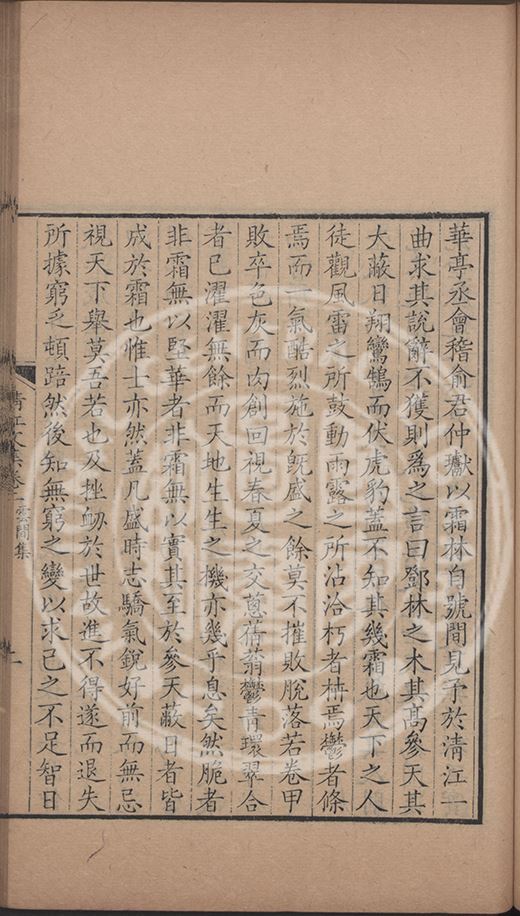 華亭丞會稽俞君仲瓛以霜林自號間見予於清江一
曲求其說辭不獲則為之言曰鄧林之木其高參天其
大蔽日翔鸞鵠而伏虎豹蓋不知其幾霜也天下之人
徒觀風雷之所鼓動雨露之所沾洽朽者榑焉鬱者條
焉而一氣酷烈施於旣盛之餘莫不摧敗脫落若卷甲
敗卒色灰而肉創回視春夏之交蔥蒨蓊鬱青環翠合
者已濯濯無餘而天地生生之機亦幾乎息矣然脆者
非霜無以堅華者非霜無以實其至於參天蔽日者皆
成於霜也惟士亦然蓋凡盛時志驕氣銳好前而無忌
視天下舉莫吾若也及挫衂於世故進不得遂而退失
所據窮乏頓踣然後知無窮之變以求己之不足智日
清江文集卷一 雲間集
一